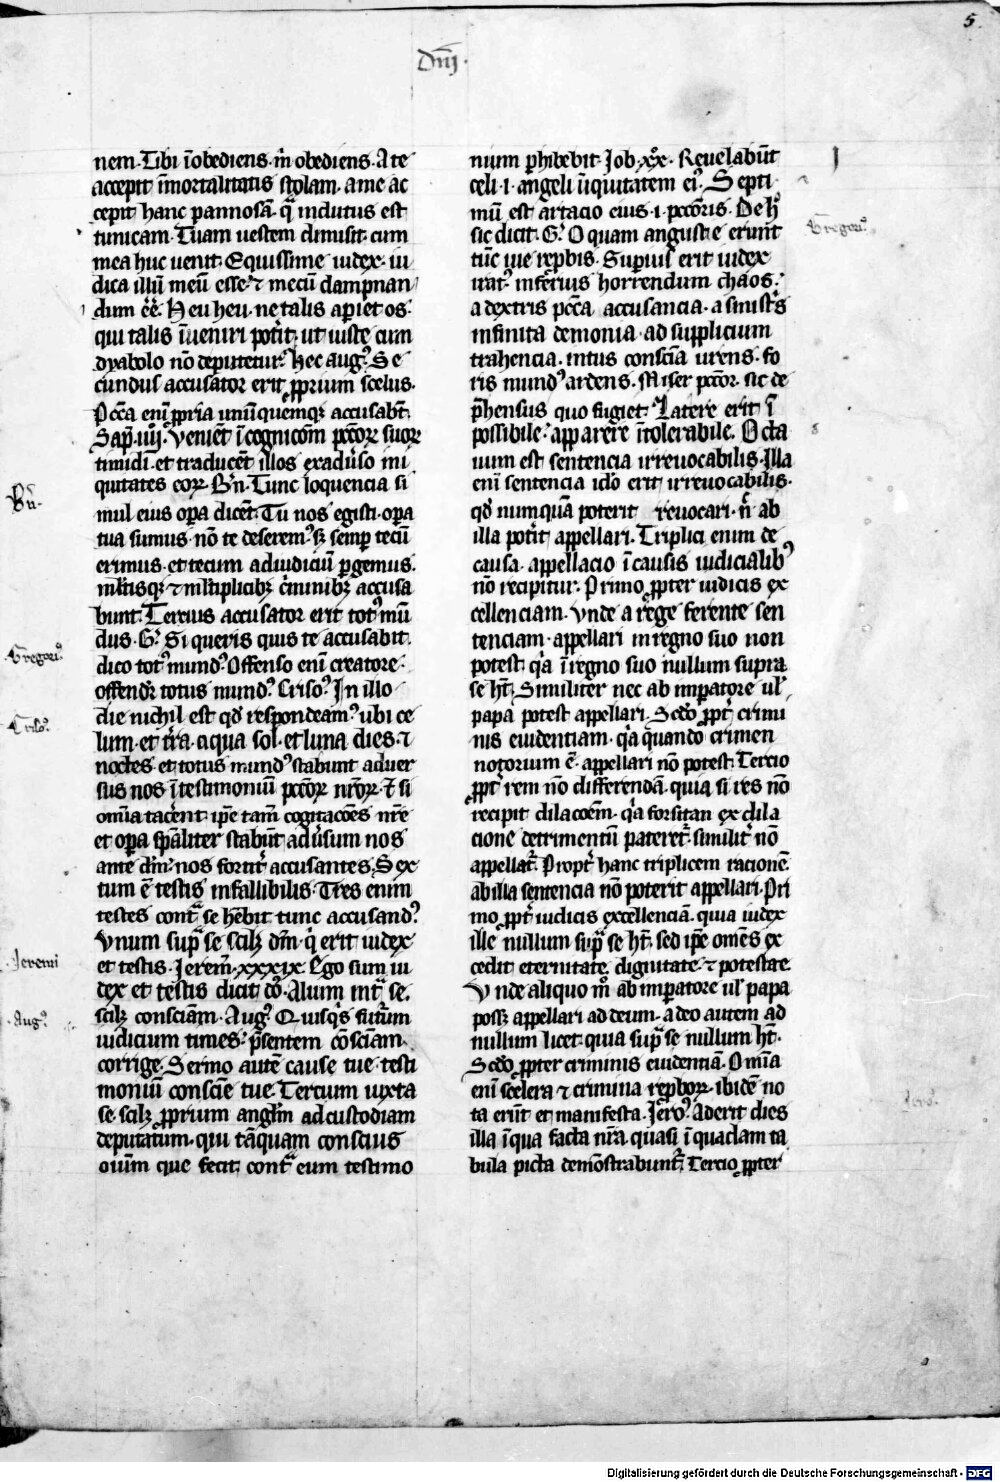 5
Dnī.
nem. Tibi īobediens. m̄ obediens. A te
accepit īmortalitatis stolam. a me ac
cepit hanc pannosā. qͣ indutus est
tunicam. Tuam uestem dimisit. cum
mea huc uenit. Equissime iudex. iu
dica illū meū esse. ⁊ mecū dampnan
dum eē. Heu heu. ne talis aperiet os.
qui talis īueniri pot̄it. ut iuste cum
dyabolo nō deputetur. Hec augꝰ. Se
cundus accusator erit ꝓprium scelus.
Pccā enī ꝓpria unūquemqꝫ accusabt̄.
Sap. iiij. Venient ī cogniconē pccōꝝ suoꝝ
timidi. et traducēt illos ex aduso ini
quitates eoꝝ. Bn̄. Tunc loquencia si
mul eius oꝑa dicēt. Tu nos egisti. oꝑa
tua sumus. nō te deseremꝰ. sꝫ semꝑ tecū
erimus. et tecum ad iudiciū ꝑgemus.
ml̄tisqꝫ ⁊ ml̄tiplicibꝫ c̄minibꝫ accusa
bunt. Tercius accusator erit totꝰ mū
dus. Gꝰ. Si queris quis te accusabit.
dico totꝰ mundꝰ. Offenso enī creatore.
offendit̄ totus mundꝰ. Crisoꝰ. In illo
die nichil est qd̄ respondeamꝰ. ubi ce
lum. et t̄ra. aqua sol. et luna dies. ⁊
noctes. et totus mundꝰ stabunt aduer
sus nos ī testimoniū pccōꝝ nr̄oꝝ. Et si
omīa tacēnt. ip̄e tam̄ cogitacōes nr̄e
et oꝑa sp̄aliter stabūt adūsum nos
ante dm̄. nos fortit̄ accusantes. Sex
tum ē testis infallibilis. Tres enim
testes contͣ se hēbit tunc accusandꝰ.
Vnum supͣ se scilꝫ dm̄. qͥ erit iudex
et testis. Jerem̄. xxxix. Ego sum iu
dex et testis dicit dn̄s. Alium intͣ se.
scilꝫ consciam. Augꝰ. Quisqͥs futūm
iudicium times. p̄sentem cōsciam
corrige. Sermo autē cause tue. testi
moniū consciē tue. Tercium iuxta
se. scilꝫ ꝓprium anglm̄ ad custodiam
deputatum. qui tāquam conscius
oīum que fecit. contͣ eum testimo
nium ꝑhibebit. Job. xx°. Reuelabūt
celi .i. angeli īiquitatem eiꝰ. Septi
mū est artacio eius .i. pccōris. De hͦ
sic dicit. Gꝰ. O quam anguste erunt
tūc uie reprobis. Superius erit iudex
iratꝰ. inferius horrendum chaos.
a dextris pccā accusancia. a sinistꝭ
infinita demonia. ad supplicium
trahencia. intus consciā urens. fo
ris mundꝰ ardens. Miser pccōr. sic de
p̄hensus quo fugiet. Latere erit ī
possibile. apparere ītolerabile. Octa
uum est sentencia irreuocabilis. Illa
enī sentencia ido̅ erit irreuocabilis.
qd̄ numquā poterit reuocari. n̄ ab
illa pot̄it appellari. Triplici enim de
causa. appellacio ī causis iudicialibꝰ
nō recipitur. Primo ꝓpter iudicis ex
cellenciam. Vnde a rege ferente sen
tenciam. appellari in regno suo non
potest. qͥa ī regno suo nullum supra
se ht̄. Similiter nec ab imperatore ul̄
papa potest appellari. Scdo̅ ꝓpt̄ crimi
nis euidentiam. qͥa quando crimen
notorium ē. appellari nō potest. Tercio
ꝓpt̄ rem nō differendā. quia si res nō
recipit dilacoēm. qͥa forsitan ex dila
cione detrimentū pateret̄. similit̄ nō
appellat̄. Propt̄ hanc triplicem racionē
ab illa sentencia nō poterit appellari. Pri
mo ꝓpt̄ iudicis excellenciā. quia iudex
ille nullum supͣ se ht̄. sed ip̄e omēs ex
cedit eternitate. dignitate. ⁊ potestate.
Vnde aliquo m° ab imperatore ul̄ papa
possꝫ appellari ad deum. a deo autem ad
nullum licet. quia supͣ se nullum ht̄.
Scdo̅ ꝓpter criminis euidentiā. Omīa
enī scelera ⁊ crimina reproboꝝ. ibidē no
ta erūt et manifesta. Jeroꝰ. Aderit dies
illa ī qua facta nr̄a. quasi ī quadam ta
bula picta demōstrabunt̄. Tercio ꝓpter
Bn̄.
Gregoriꝰ.
Crisoꝰ.
Jeremi
Augꝰ.
Gregoriꝰ.
Jeroꝰ.
Digitalisierung gefördert durch die Deutsche Forschungsgemeinschaft - DFG